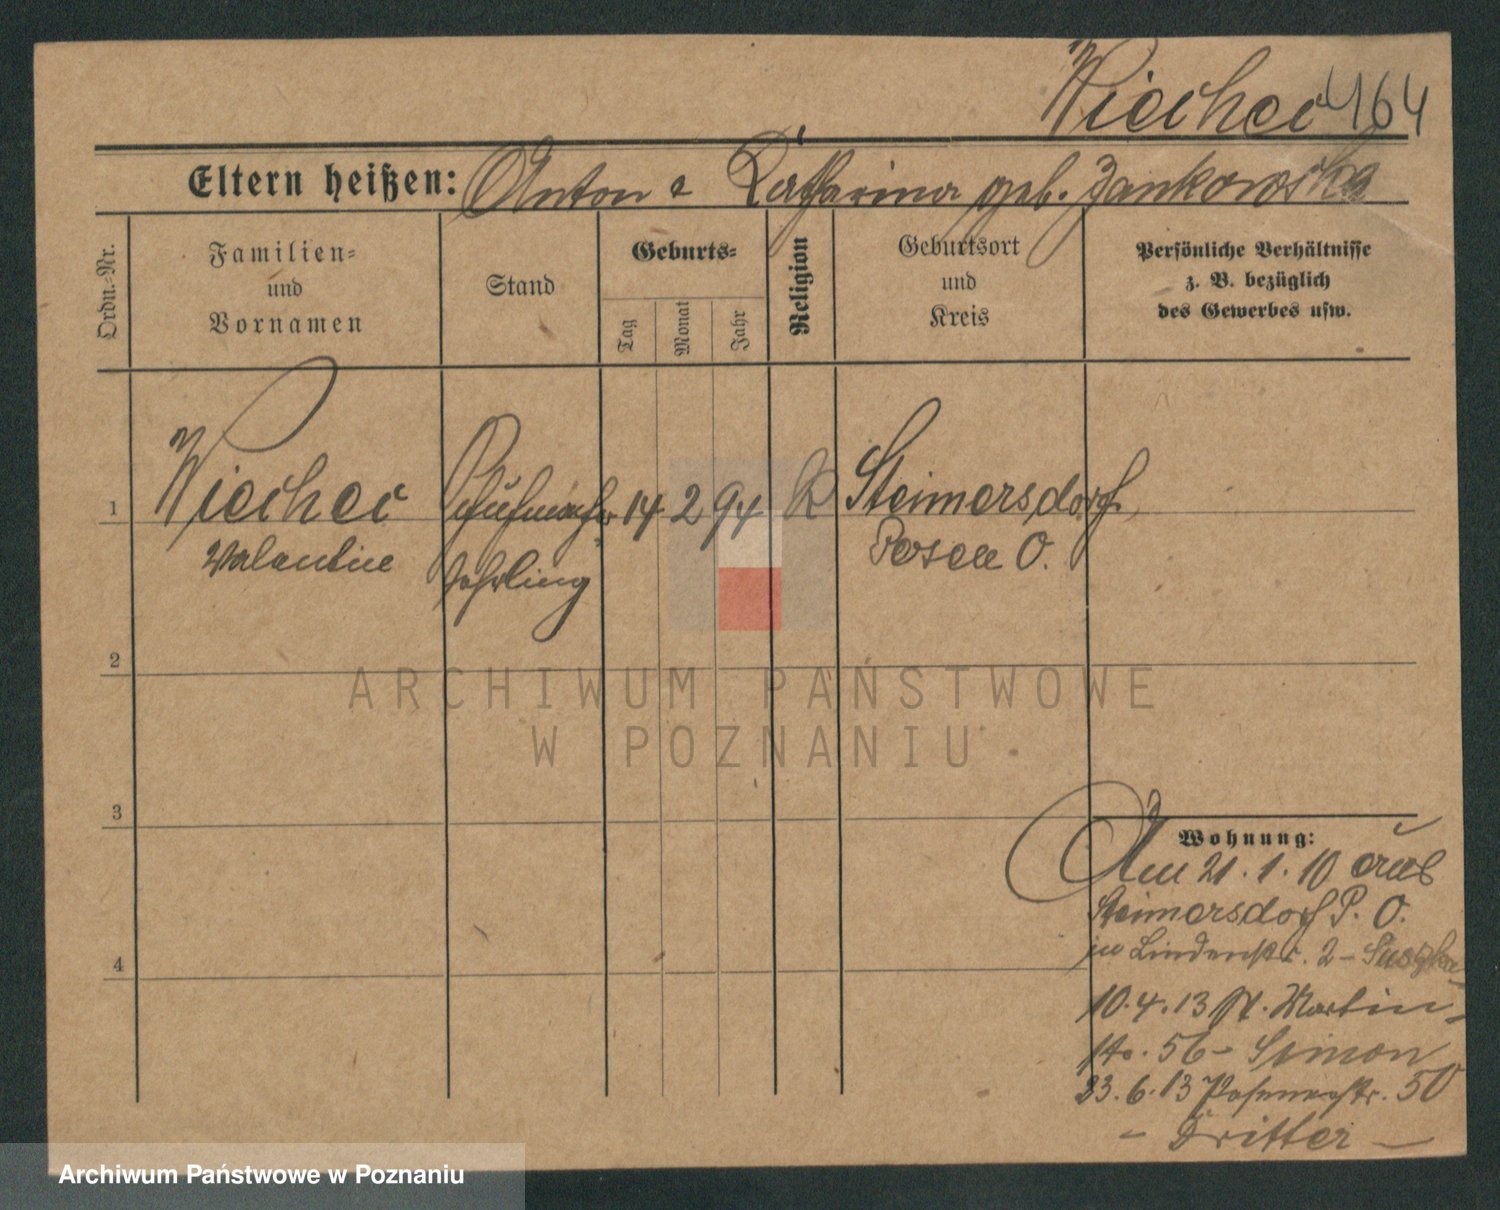 Wieche 4164
Eltern heißen: Anton & Katharina geb. Jankowska
Ordn.-Nr.
Familien-
und
Vornamen
Stand
Geburts-
Tag
Monat
Jahr
Religion
Geburtsort
und
Kreis
Persönliche Verhältnisse
z. B. bezüglich
des Gewerbes usw.
1
Wiechec Schuhmacher 14 2 94 K Steimersdorf,
Valentin Lehrling Posen O.
2
3
4
Wohnung:
Am 21.1.10 aus
Steimersdorf P. O.
in Lindenstr. 2 -
10.4.13 St. Martin-
56 - Simon
23.6.13 50
- Dritter -
ARCHIWUM PAŃSTWOWE
W POZNANIU
Archiwum Państwowe w Poznaniu